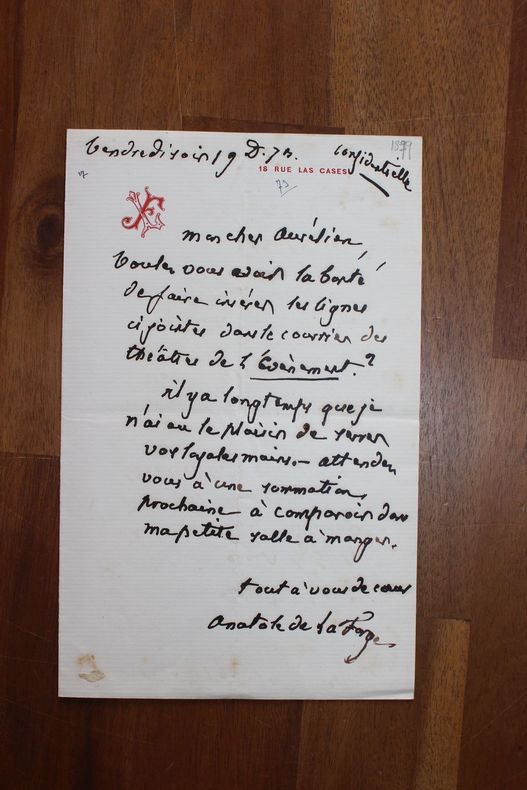 Vendredi soir 19 D. 73. confidentielle
1899
18 RUE LAS CASES
73
mon cher Aurélien,
Voulez vous avoir la bonté
de faire insérer les lignes
ci jointes dans le courrier des
théâtres de l'Évènement?
il y a longtemps que je
n'ai eu le plaisir de serrer
vos loyales mains – attendez
vous à une sommation
prochaine à comparoir dans
ma petite salle à manger.
tout à vous de cœur
Anatole de La Forge